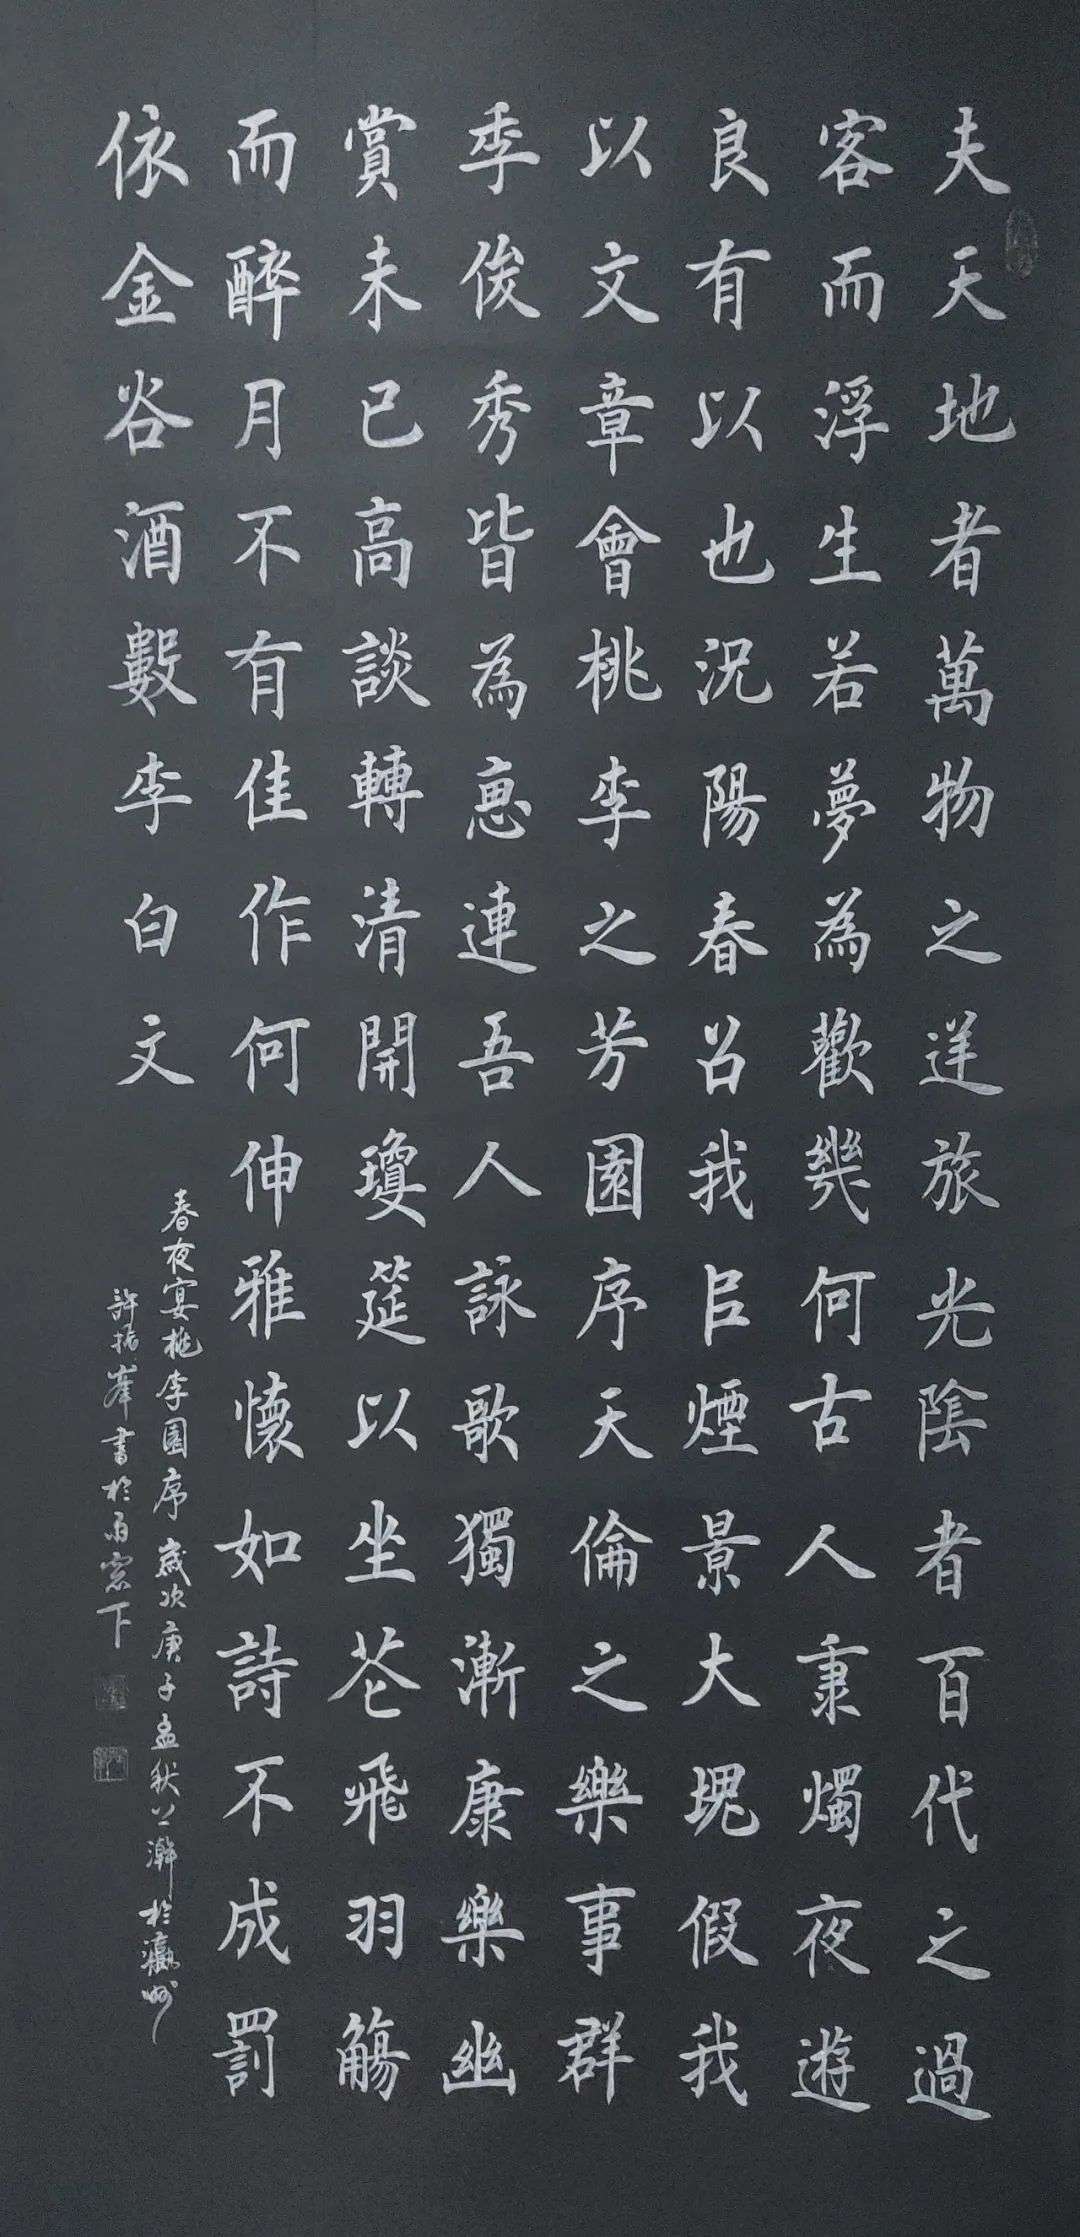 夫天地者萬物之逆旅光陰者百代之過
客而浮生若夢為歡幾何古人秉燭夜遊
良有以也況陽春召我以煙景大塊假我
以文章會桃李之芳園序天倫之樂事群
季俊秀皆為惠連吾人詠歌獨漸康樂幽
賞未已高談轉清開瓊筵以坐花飛羽觴
而醉月不有佳作何伸雅懷如詩不成罰
依金谷酒數李白文
春夜宴桃李園序歲次庚子孟秋上澣於瀛州
許振峯書於雨窓下